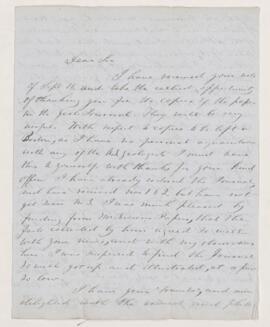 Dear Sir
I have received your note
of Sept 14 and take the earliest opportunity
of thanking you for the copies of the paper
in the Journal. They will be very
useful. With respect to copies to be left in
Boston, as I have no personal acquaintance
with any of the Geologists I must leave
this to yourself with thanks for your kind
offer. I have already received the Journal
and have received nos 1 & 2 but have not
yet seen No 3. I was much pleased by
finding from Mr Paper, that the
facts collected by him agreed so well
with your and with my observations
here. I was surprised to find the Journal
so well got up and illustrated, at a price
so low.
I have your and am
delighted with the and